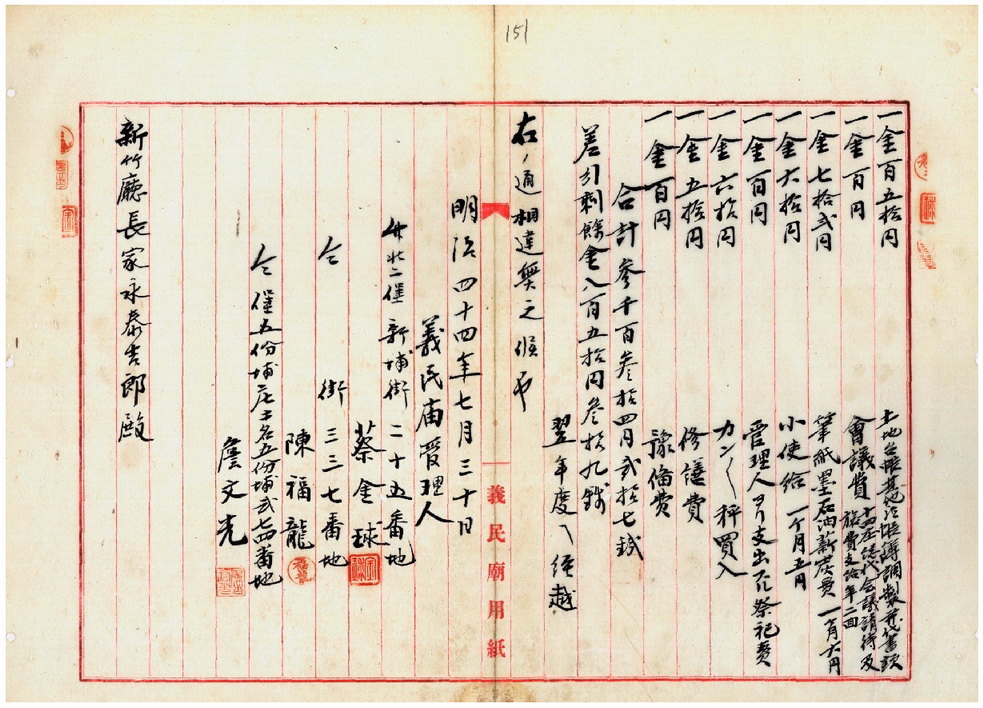 151
一金百五拾円 土地台帳其他諸帳簿調製
一金百円 會議費 十四庄総代会議請待及旅費支給年二回
一金七拾弍円 筆紙墨石油薪炭費 一ヶ月六円
一金六拾円 小使給 一个月五円
一金百円 管理人ヨリ支出スル祭祀費
一金六拾円 カン〱秤買入
一金五拾円 修繕費
一金百円 豫備費
合計參千百叁拾四円弍拾七錢
差引剰餘金八百五拾円叁拾九錢
翌年度ヘ繰越
右ノ通相違無之候也
義民廟用紙
明治四十四年七月三十日
義民廟管理人
竹北二堡新埔街二十五番地
蔡金球
仝 街三三七番地
陳福龍
仝堡五份埔庄土名五份埔弍七四番地
詹文光
新竹廳長家永泰吉郎殿